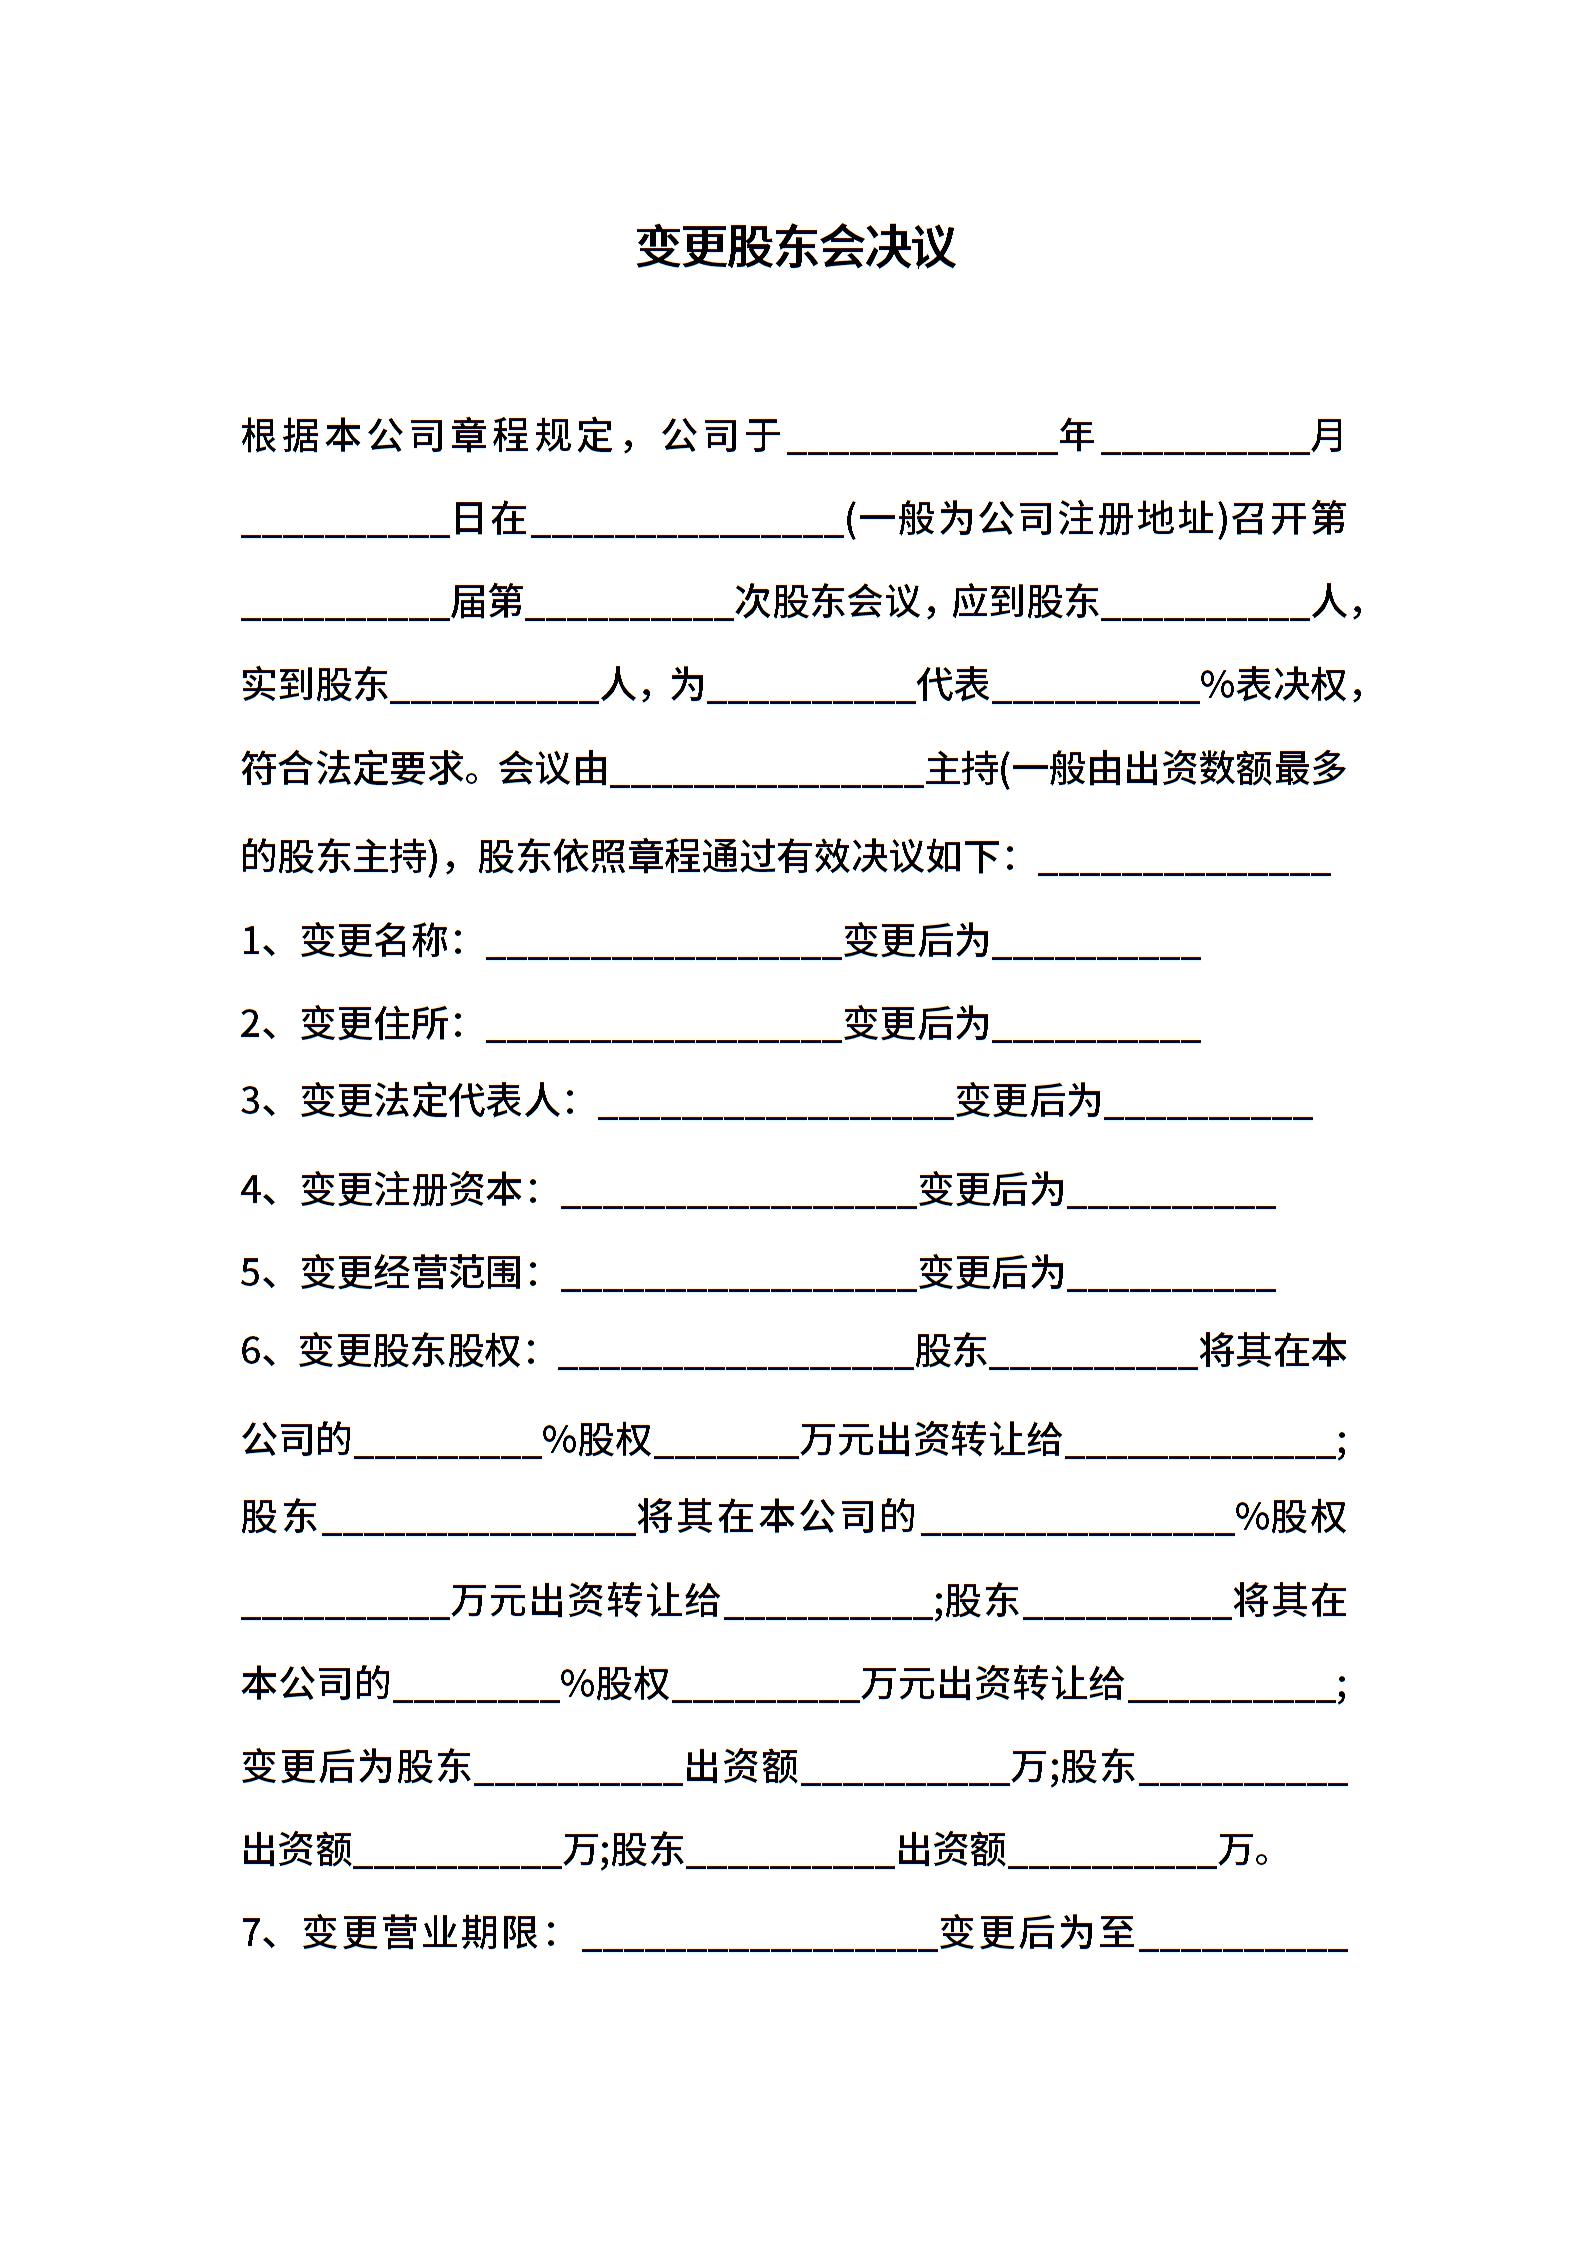 变更股东会决议
根据本公司章程规定，公司于_____________年__________月
__________日在_______________(一般为公司注册地址)召开第
__________届第__________次股东会议，应到股东__________人，
实到股东__________人，为__________代表__________%表决权，
符合法定要求。会议由_______________主持(一般由出资数额最多
的股东主持)，股东依照章程通过有效决议如下：______________
1、变更名称：_________________变更后为__________
2、变更住所：_________________变更后为__________
3、变更法定代表人：_________________变更后为__________
4、变更注册资本：_________________变更后为__________
5、变更经营范围：_________________变更后为__________
6、变更股东股权：_________________股东__________将其在本
公司的_________%股权_______万元出资转让给_____________;
股东_______________将其在本公司的_______________%股权
__________万元出资转让给__________;股东__________将其在
本公司的________%股权_________万元出资转让给__________;
变更后为股东__________出资额__________万;股东__________
出资额__________万;股东__________出资额__________万。
7、变更营业期限：_________________变更后为至__________